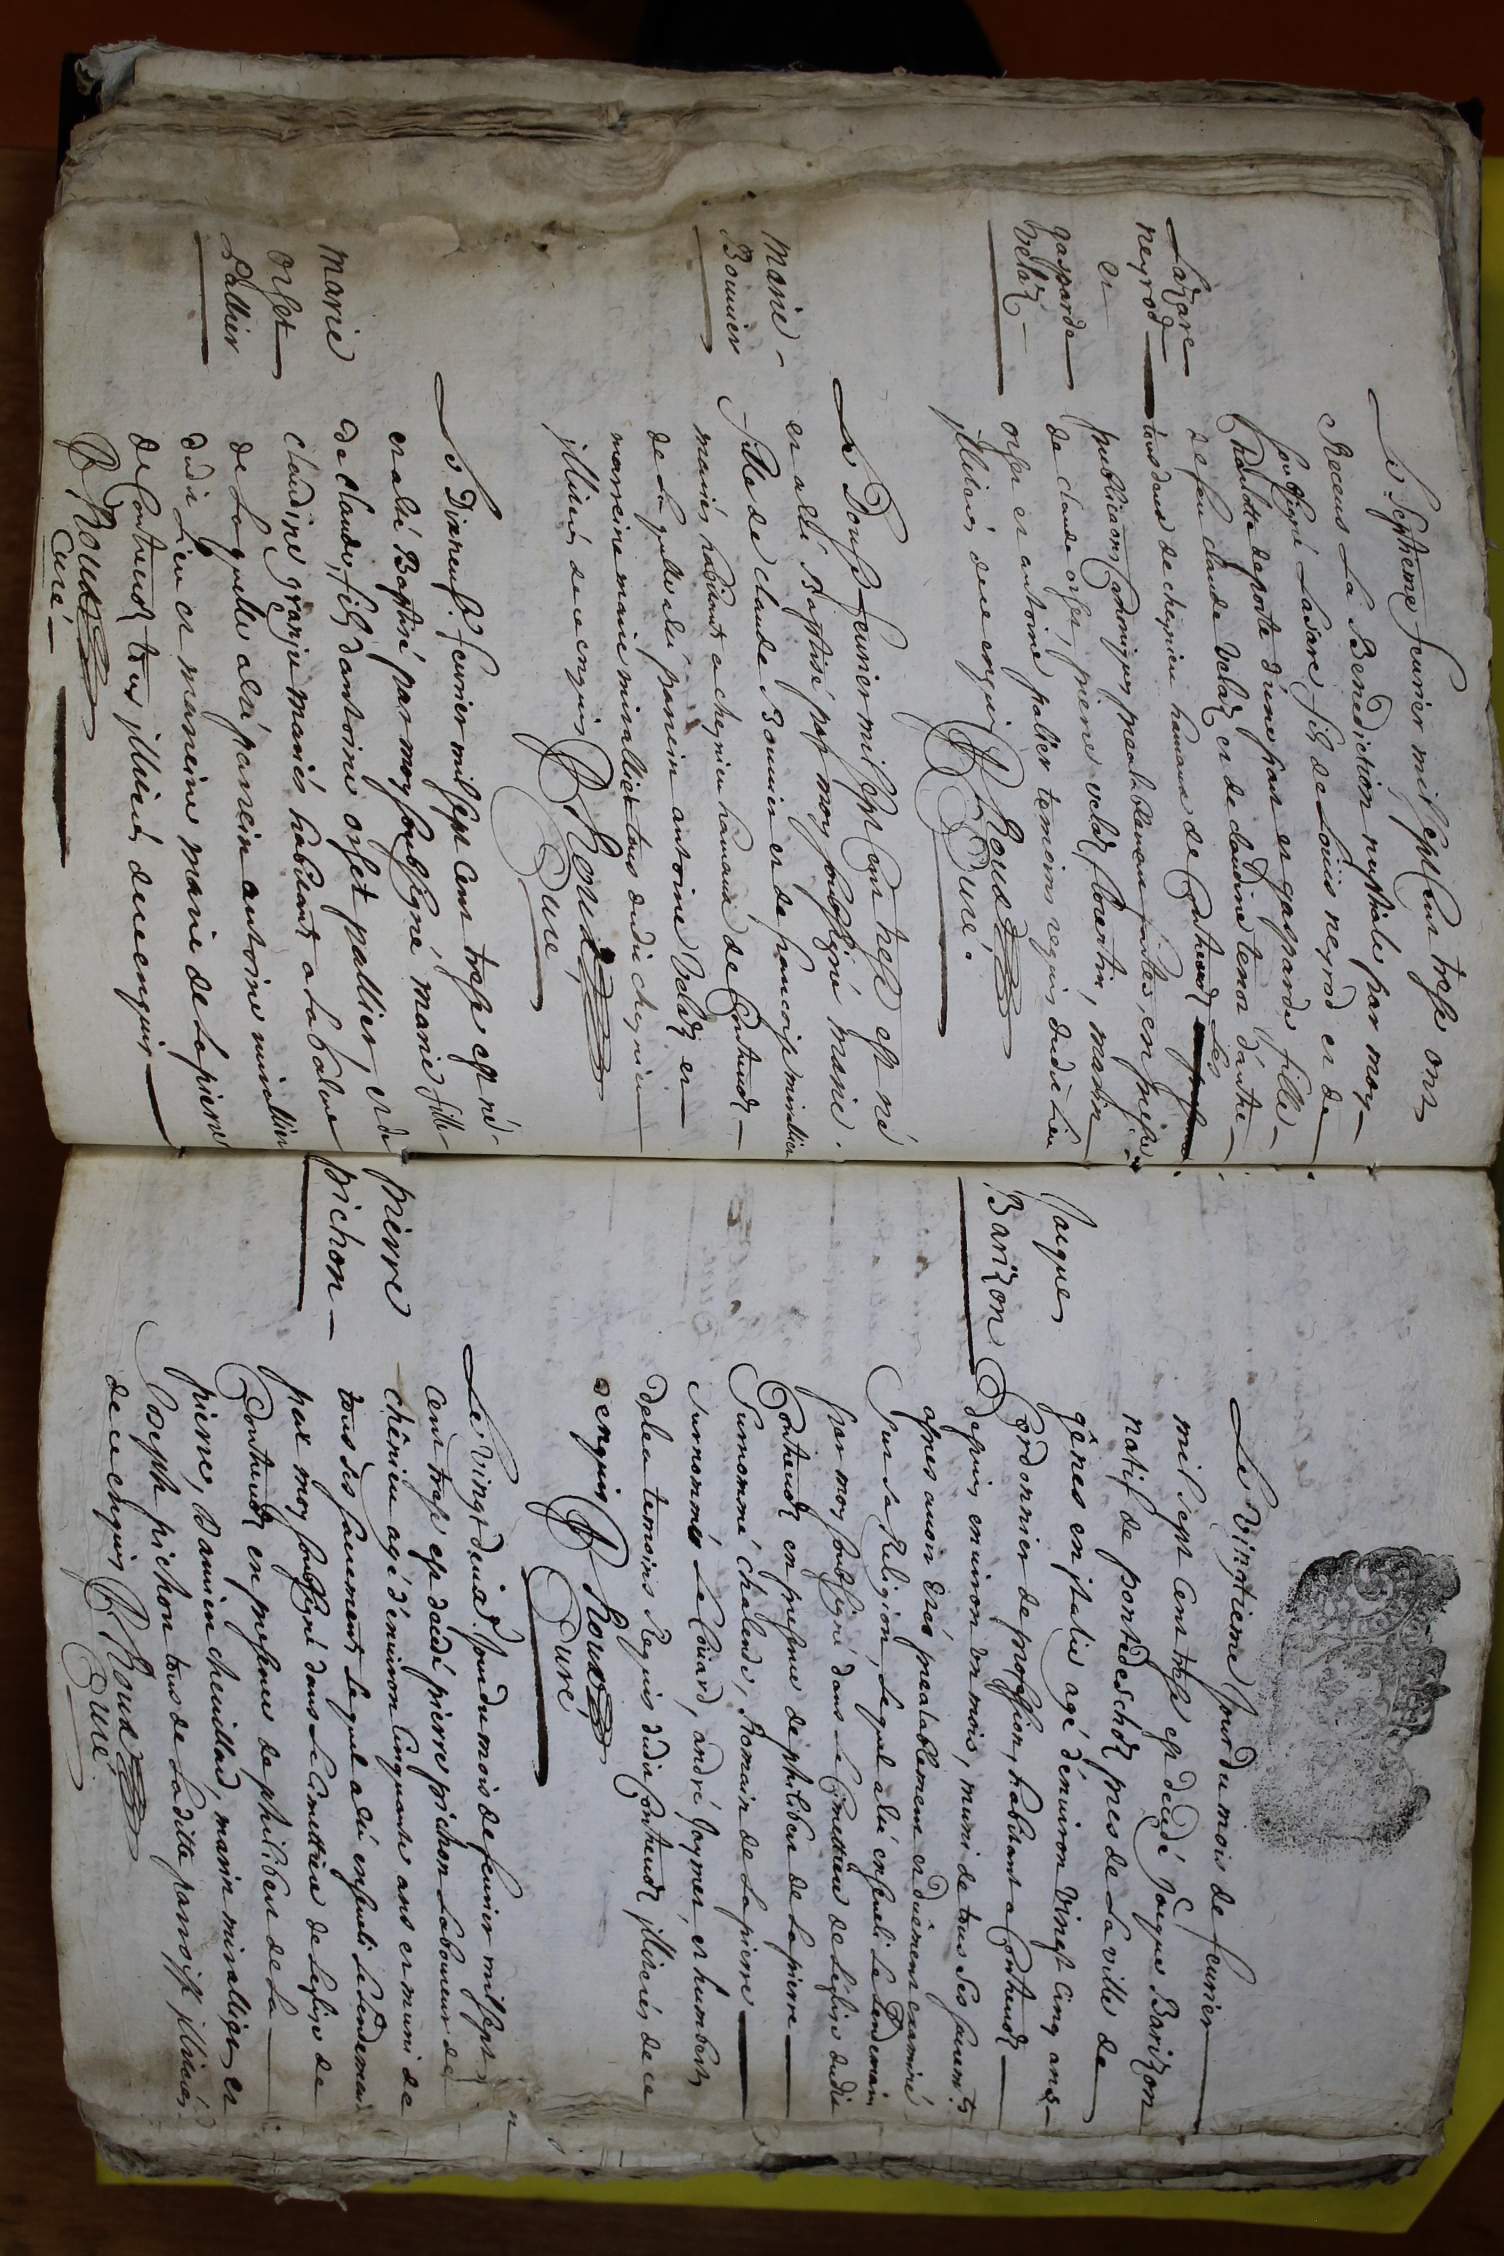 Lazare
neyrod
et
gasparde
Velaz
Le Septieme feurier mil sept Cent treize ont
Receus La Benediction nuptiale par moy
soubsigné Lazare fils de Loüis neyrod et de
Claudine d'une part et gasparde fille
de feu claude Velaz et de claudine d'autre
tous deux de cheynieu hameau de Contreuoz Les
publicaons Canoniques prealablement faites, en presce
de claude orset, pierre velaz, florentin, martin
orset et antoine palier temoins requis dudit Lieu
illiterés de ce enquis B Roux
Curé.
Marie
Bonnier
Le Douze feurier mil sept Cent treize est né
et a esté Baptisé par moy soubsigné marie
fille de claude Bonnier et de francoise miraillier
mariés habitants a cheynieu hameau de Contreuoz
de Laquelle a eté parrein antoine Velaz et
marreine marie miraillier tous dudit cheynieu
illiterés de ce enquis B Roux
Curé
marie
orset
Pallier
Le Dixneuf. feurier mil sept Cent treize est né
et a eté Baptisé par moy soubsigné marie fille
de claude, fils d'antoine orset pallier et de
claudine granju mariés habitants a la balme
de Laquelle a eté parrein antoine miraillier
dudit Lieu et marreine marie de Lapierre
de Contreuoz tous illiterés de ce enquis
B Roux
Curé
Jaques
Barizon
Le Vingtieme Jour du mois de feurier
mil sept Cent treize est decedé Jaques Barizon
natif de pres de La ville de
gênes en jtalie agé d'enuiron Vingt Cinq ans
Cordonnier de profession, habitant a Contreuoz
depuis enuiron un mois, muni de tous Ses sacremts
apres auoir Eté prealablement et düement examiné
Sur sa Religion, Lequel a eté enseueli Le Lendemain
par moy soubsigné dans Le Cimettiere de Leglise dudit
Contreuoz en presence de philibert de Lapierre
Surnommé chalende, Romain de Lapierre
surnommé Le Coüard, andré Joymet et humbert
Deleu temoins Requis dudit Contreuoz illiterés de ce
enquis B Roux
Curé
pierre
pichon
Le Vingt deuxe. Jour du mois de feurier mil sept
Cent treize est decedé pierre pichon Laboureur de
cheynieu agé d'enuiron Cinquante ans et muni de
tous Ses sacrements Lequel a eté enseueli Le Lendemain
par moy soubsigné dans Le Cimettiere de Leglise de
Contreuoz en presence de philibert de La
pierre, Damien cheuillard, marin miraillier et
Joseph pichon tous de Laditte parroisse illiterés
de ce enquis B Roux
Curé